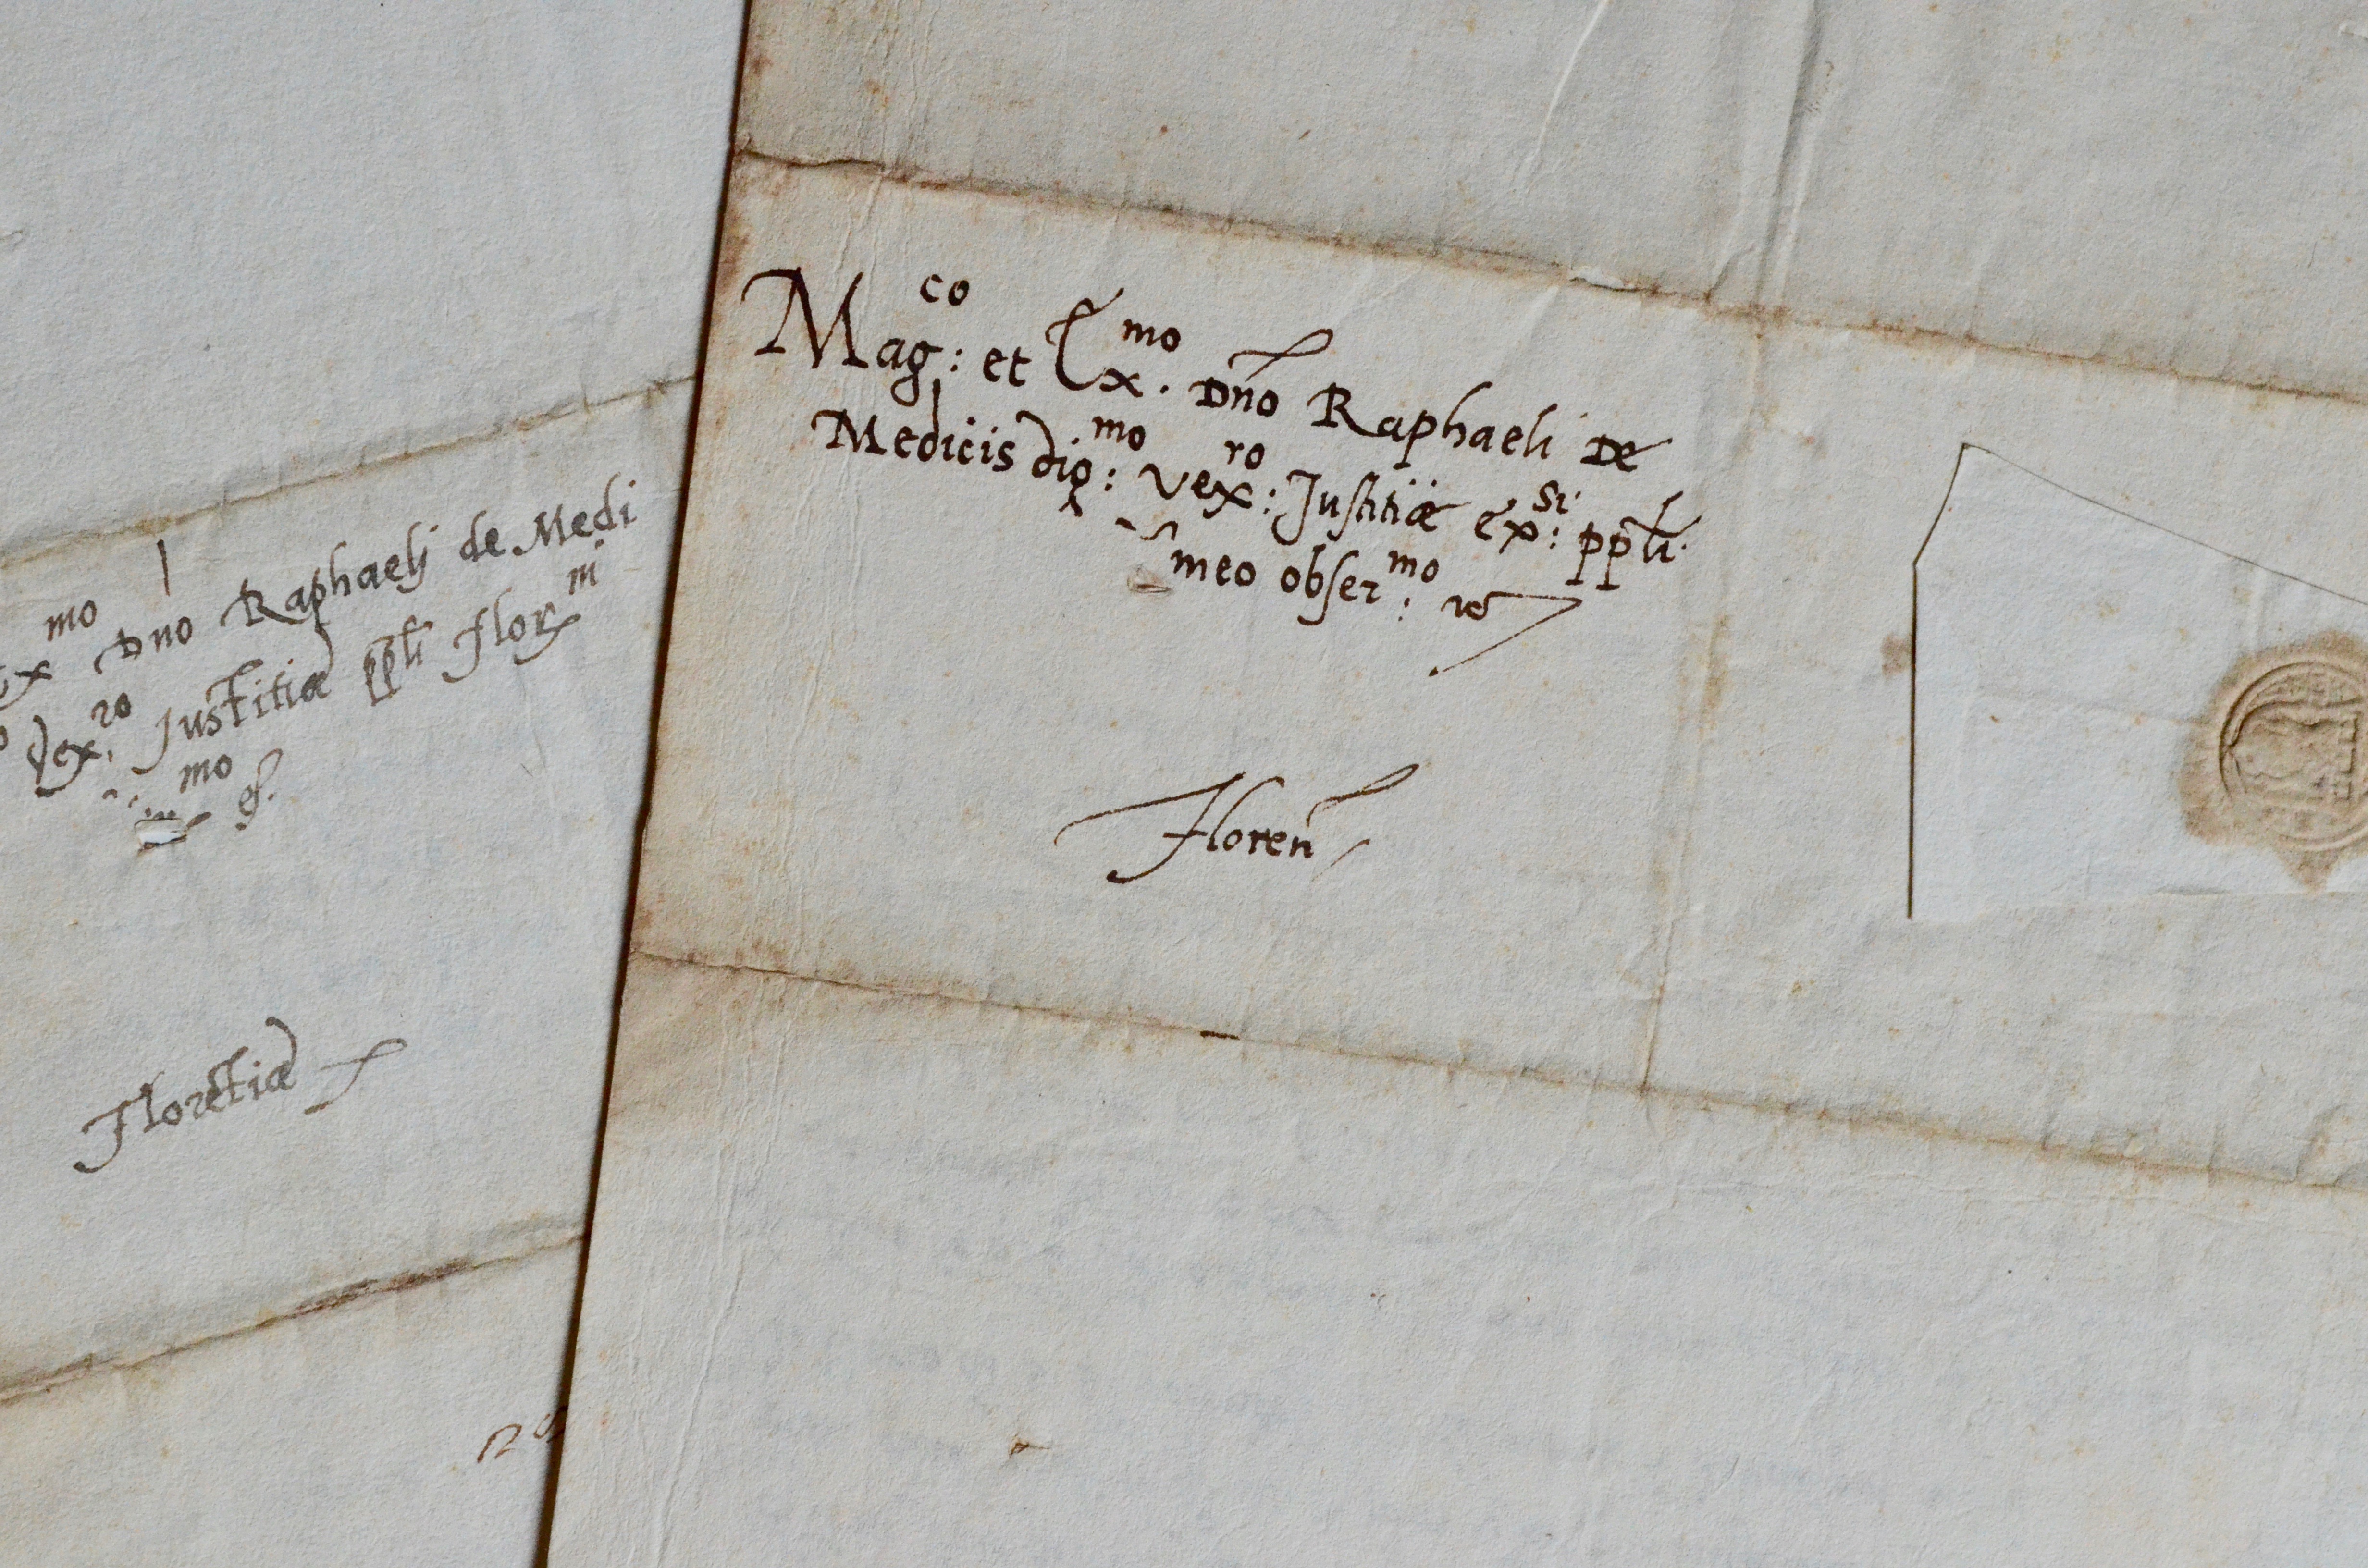 mo
Dno Raphaelj de Medi
Vex:ro Justitiæ ppli Flor:ni
mo
Floretiæ
Mag:co et Ex.mo Dño Raphaeli De
Medicis dig:mo vex:ro Justitiæ Ex:si ppli.
meo obser:mo
Floreñ